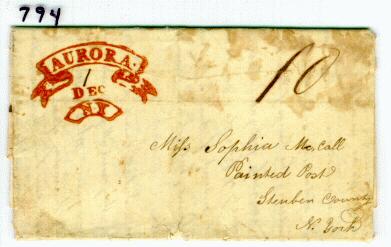 794
AURORA.
1
DEC
N.Y
10
Miss Sophia McCall
Painted Post
Steuben County
N. York